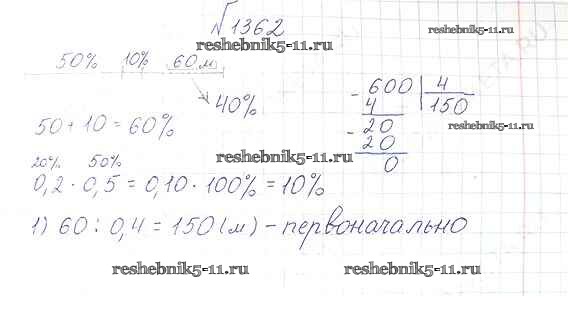 √1362
reshebnik5-11.ru
50% 10% 60м
40%
600 4
- 4 150
20
- 20
0
reshebnik5-11.ru
50 + 10 = 60%
reshebnik5-11.ru
20% 50%
0,2 · 0,5 = 0,10 · 100% = 10%
1) 60 : 0,4 = 150 (м) - первоначально
reshebnik5-11.ru
reshebnik5-11.ru